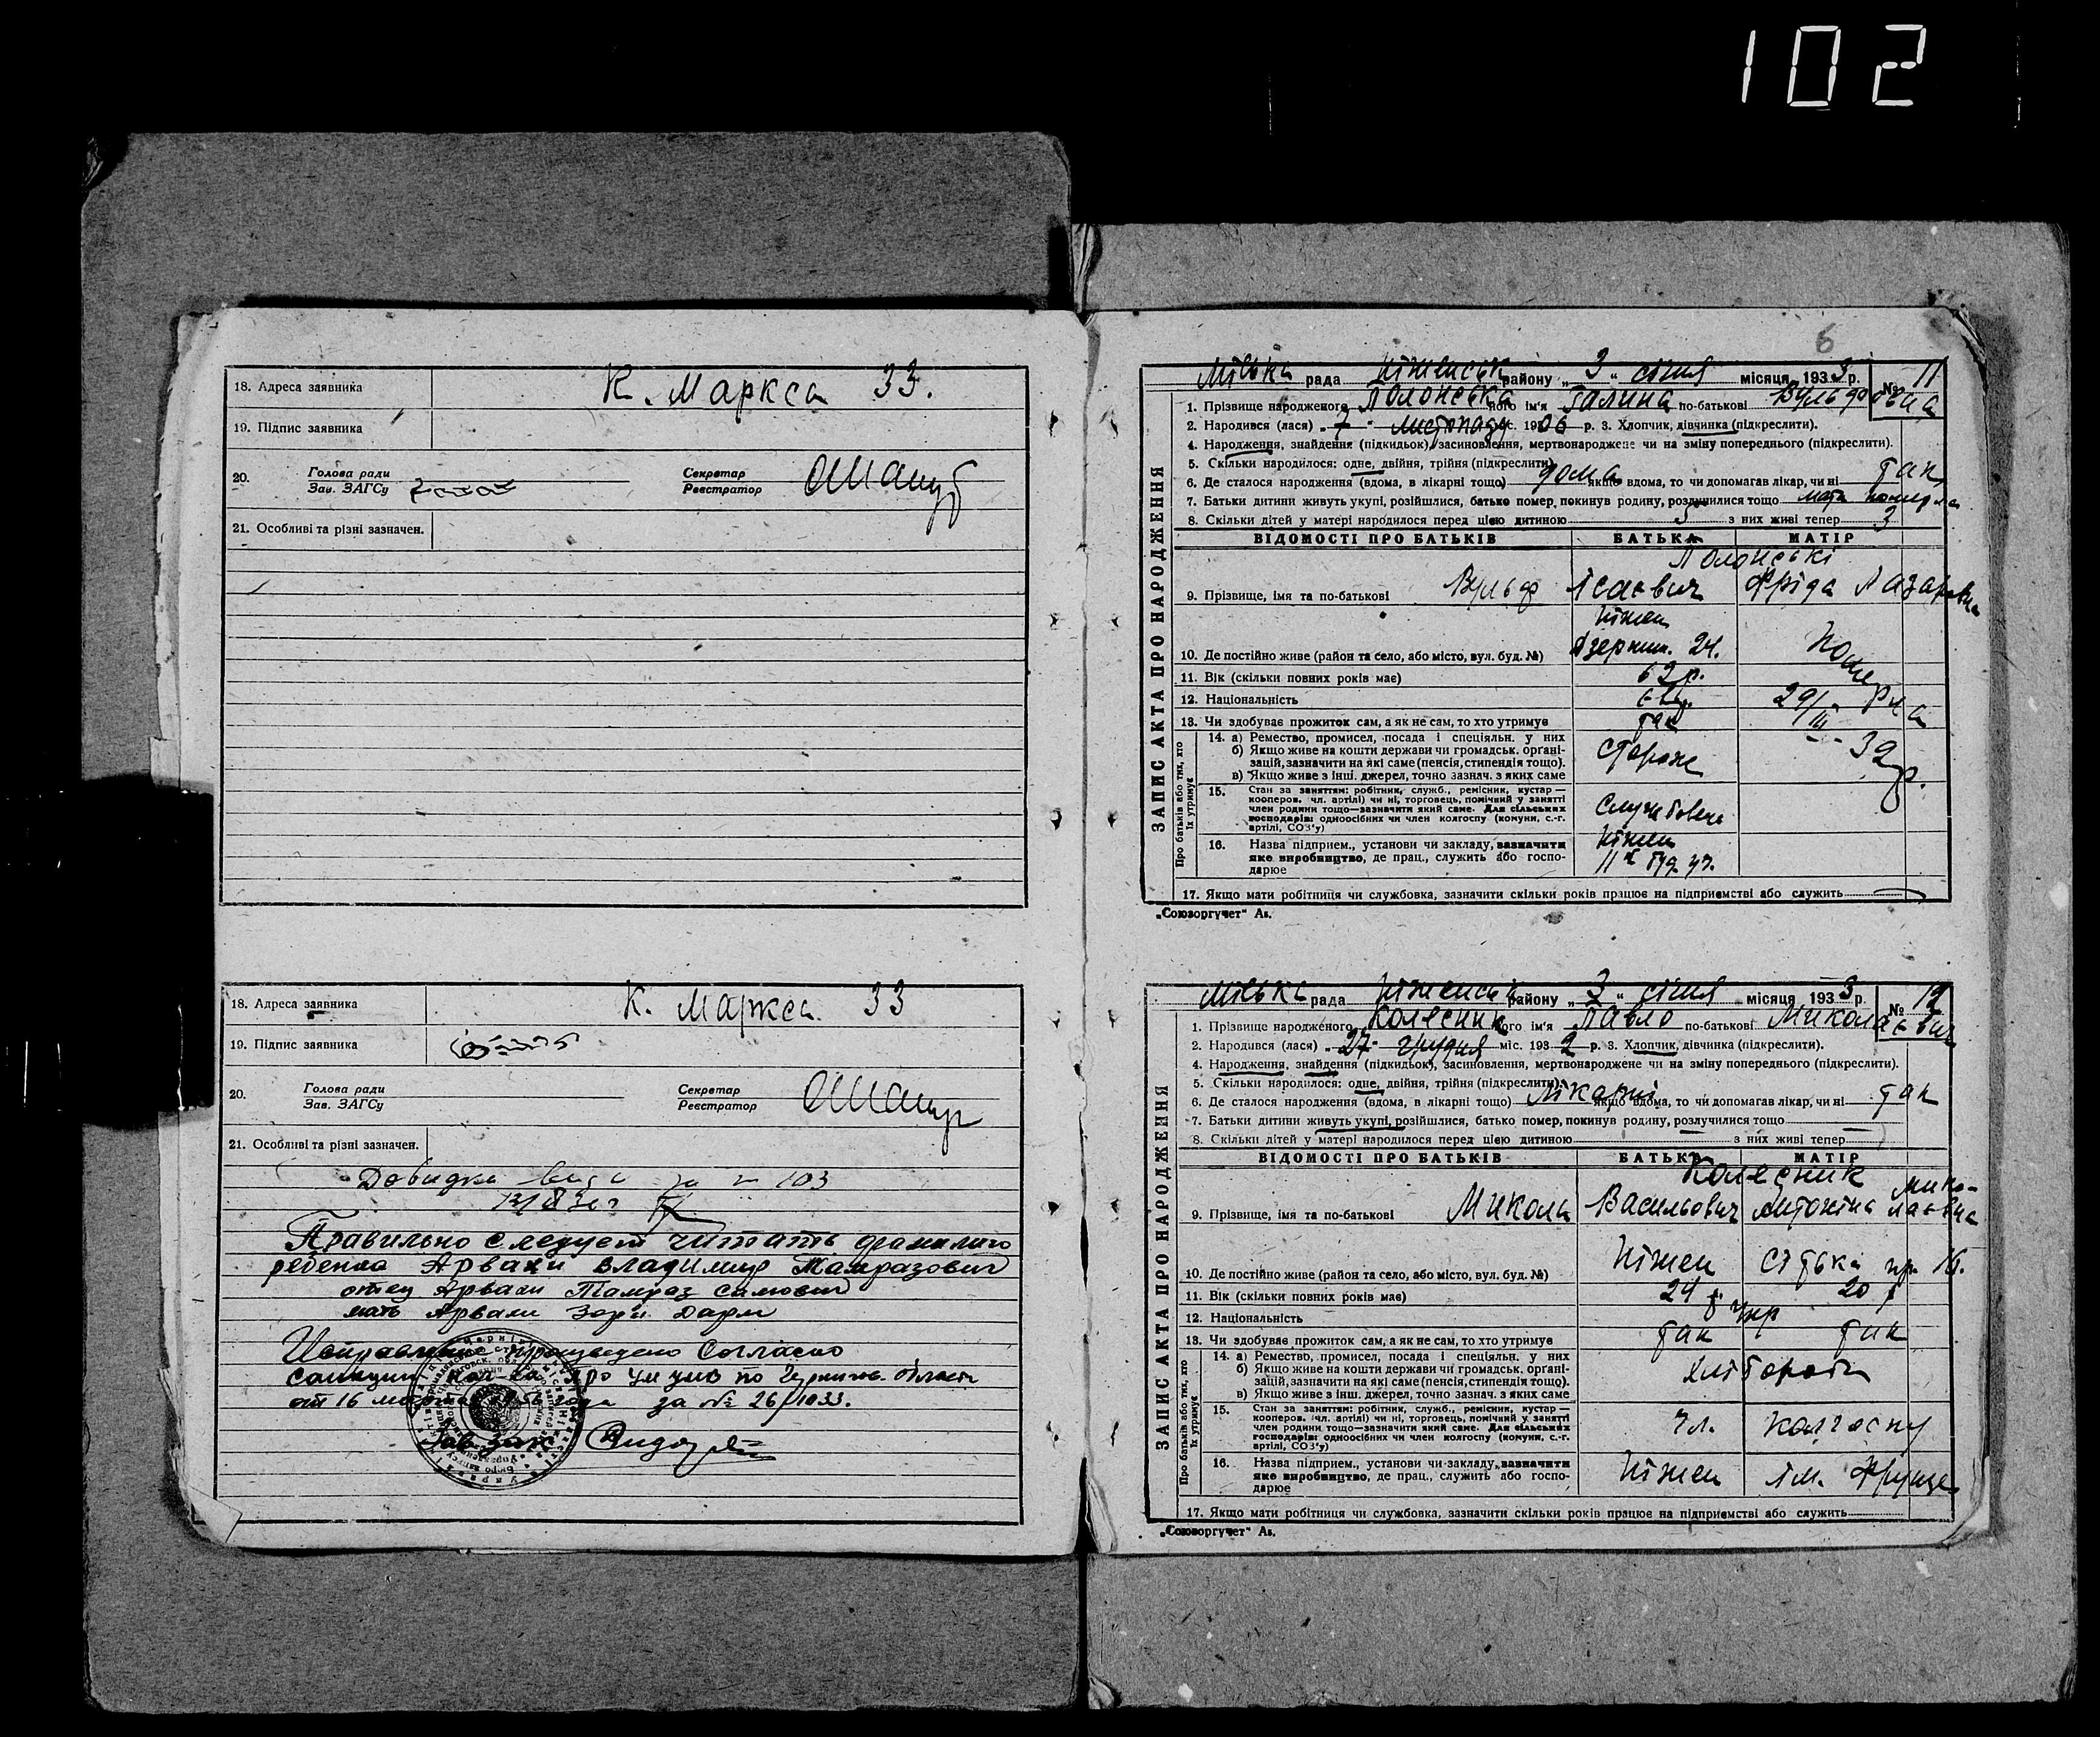 102
18. Адреса заявника К. Маркса 33.
19. Підпис заявника
20. Голова ради Секретар
Зав. ЗАГСу Реєстратор
21. Особливі та різні зазначен.
18. Адреса заявника К. Маркса 33
19. Підпис заявника
20. Голова ради Секретар
Зав. ЗАГСу Реєстратор
21. Особливі та різні зазначен.
Довидка за № 103
Правильно следует читать фамилию
ребенка Арвахи Владимир Тамразович
отец Арвахи Тамраз
мать Арвахи Зори Дари
Исправление произведено согласно
санкции по Чернигов. области
от 16 марта за № 26/1033.
Зав загс
6
ЗАПИС АКТА ПРО НАРОДЖЕННЯ
Міська рада Ніженськ району „3“ січня місяця 1933 р. № 11
1. Прізвище народженого Полонська його ім'я Галина по-батькові Вульфовна
2. Народився (лася) „7“ листопаду міс. 1906 р. 3. Хлопчик, дівчинка (підкреслити).
4. Народження, знайдення (підкидьок), засиновлення, мертвонароджене чи на зміну попереднього (підкреслити).
5. Скільки народилося: одне, двійня, трійня (підкреслити)
6. Де сталося народження (вдома, в лікарні тощо) дома якщо вдома, то чи допомагав лікар, чи ні так
7. Батьки дитини живуть укупі, розійшлися, батько помер, покинув родину, розлучилися тощо мати померла
8. Скільки дітей у матері народилося перед цією дитиною 5 з них живі тепер 3
ВІДОМОСТІ ПРО БАТЬКІВ БАТЬКА МАТІР
Полонські
9. Прізвище, імя та по-батькові Вульф Ісаєвич Фріда Лазаровна
Ніжен
10. Де постійно живе (район та село, або місто, вул. буд. №) Дзержин. 24. Померла
11. Вік (скільки повних років має) 62 р.
12. Національність євр. 29/III
13. Чи здобуває прожиток сам, а як не сам, то хто утримує так 32 р.
Про батьків або тих, хто їх утримує
14. а) Ремество, промисел, посада і спеціяльн. у них
б) Якщо живе на кошти держави чи громадськ. органі-
зацій, зазначити на які саме (пенсія, стипендія тощо). Сторож
в) Якщо живе з інш. джерел, точно зазнач. з яких саме
15. Стан за заняттям: робітник, служб., ремісник, кустар —
кооперов. чл. артілі) чи ні, торговець, помічний у занятті
член родини тощо—зазначити який саме. Для сільських
господарів: одноосібних чи член колгоспу (комуни, с.-г. Службовец
артілі, СОЗ'у)
Ніжен
16. Назва підприєм., установи чи закладу, зазначити
яке виробництво, де прац., служить або госпо-
дарює
17. Якщо мати робітниця чи службовка, зазначити скільки років працює на підприємстві або служить
„Союзоргучет“ Ав.
ЗАПИС АКТА ПРО НАРОДЖЕННЯ
Міська рада Ніженськ району „3“ січня місяця 1933 р. № 12
1. Прізвище народженого Колесник його ім'я Павло по-батькові Миколаєвич
2. Народився (лася) „27“ грудня міс. 1932 р. 3. Хлопчик, дівчинка (підкреслити).
4. Народження, знайдення (підкидьок), засиновлення, мертвонароджене чи на зміну попереднього (підкреслити).
5. Скільки народилося: одне, двійня, трійня (підкреслити)
6. Де сталося народження (вдома, в лікарні тощо) лікарні якщо вдома, то чи допомагав лікар, чи ні так
7. Батьки дитини живуть укупі, розійшлися, батько помер, покинув родину, розлучилися тощо
8. Скільки дітей у матері народилося перед цією дитиною з них живі тепер
ВІДОМОСТІ ПРО БАТЬКІВ БАТЬКА МАТІР
Колесник
9. Прізвище, імя та по-батькові Микола Васильович Антоніна Миколаєвна
10. Де постійно живе (район та село, або місто, вул. буд. №) Ніжен 16.
11. Вік (скільки повних років має) 24 20
12. Національність укр
13. Чи здобуває прожиток сам, а як не сам, то хто утримує так так
Про батьків або тих, хто їх утримує
14. а) Ремество, промисел, посада і спеціяльн. у них
б) Якщо живе на кошти держави чи громадськ. органі- хлібороби
зацій, зазначити на які саме (пенсія, стипендія тощо).
в) Якщо живе з інш. джерел, точно зазнач. з яких саме
15. Стан за заняттям: робітник, служб., ремісник, кустар —
кооперов. чл. артілі) чи ні, торговець, помічний у занятті
член родини тощо—зазначити який саме. Для сільських чл. колгоспу
господарів: одноосібних чи член колгоспу (комуни, с.-г.
артілі, СОЗ'у)
16. Назва підприєм., установи чи закладу, зазначити
яке виробництво, де прац., служить або госпо- Ніжен ім. Фрунзе
дарює
17. Якщо мати робітниця чи службовка, зазначити скільки років працює на підприємстві або служить
„Союзоргучет“ Ав.